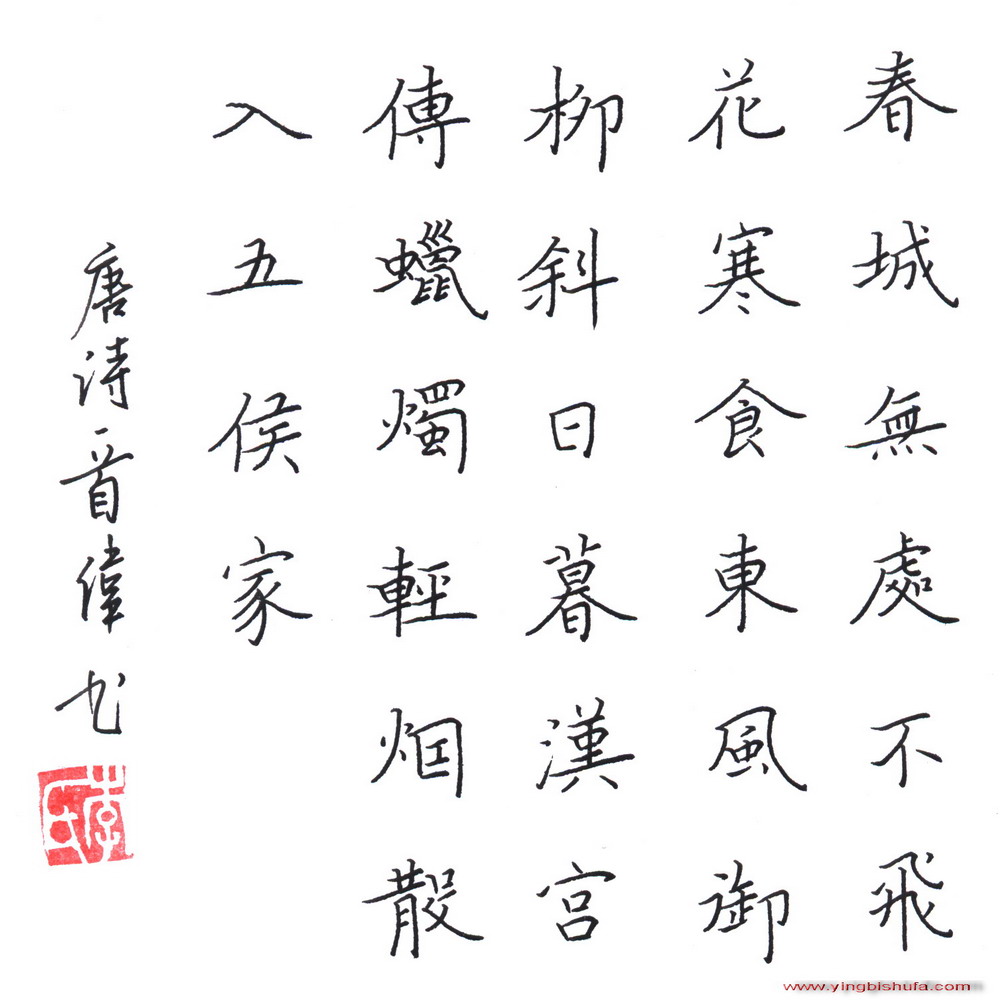 春城無處不飛
花寒食東風御
柳斜日暮漢宮
傳蠟燭輕烟散
入五侯家
唐诗一首偉书
李氏
www.yingbishufa.com